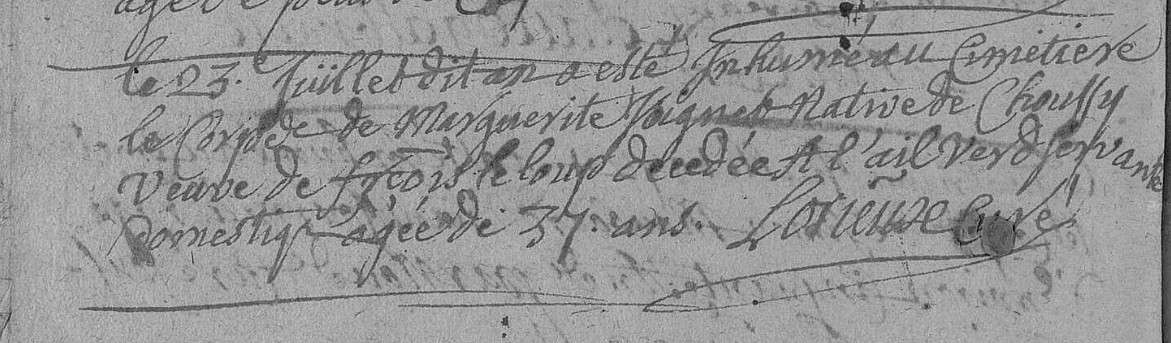 le 23. Juïllet dit an a esté Inhumé au Cimetiere
le Corps de de Marguerite Native de ChousSy
Veuve de frcois le loup decedée A l'ail Verd servante
Domestiq agée de 37. ans. Curé